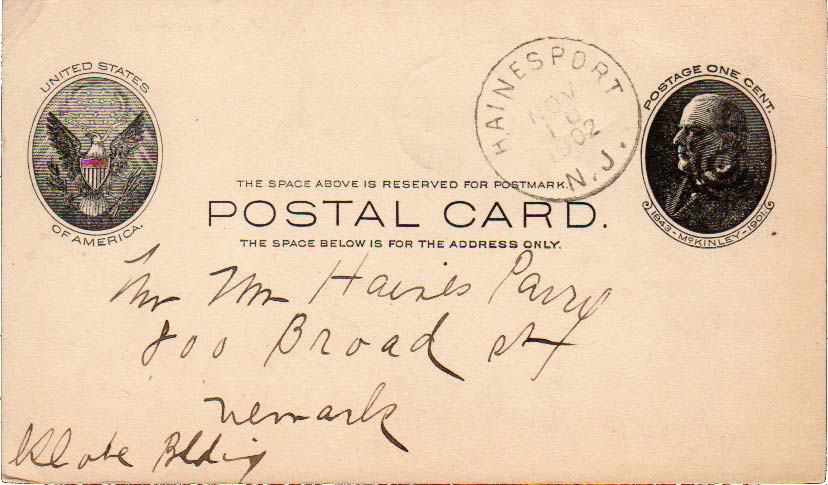 UNITED STATES
OF AMERICA.
HAINESPORT
NOV
10
1902
N.J.
POSTAGE ONE CENT.
1843-McKINLEY-1901.
THE SPACE ABOVE IS RESERVED FOR POSTMARK.
POSTAL CARD.
THE SPACE BELOW IS FOR THE ADDRESS ONLY.
Mr Wm Haines Parry
800 Broad st
Newark
Globe Bldin